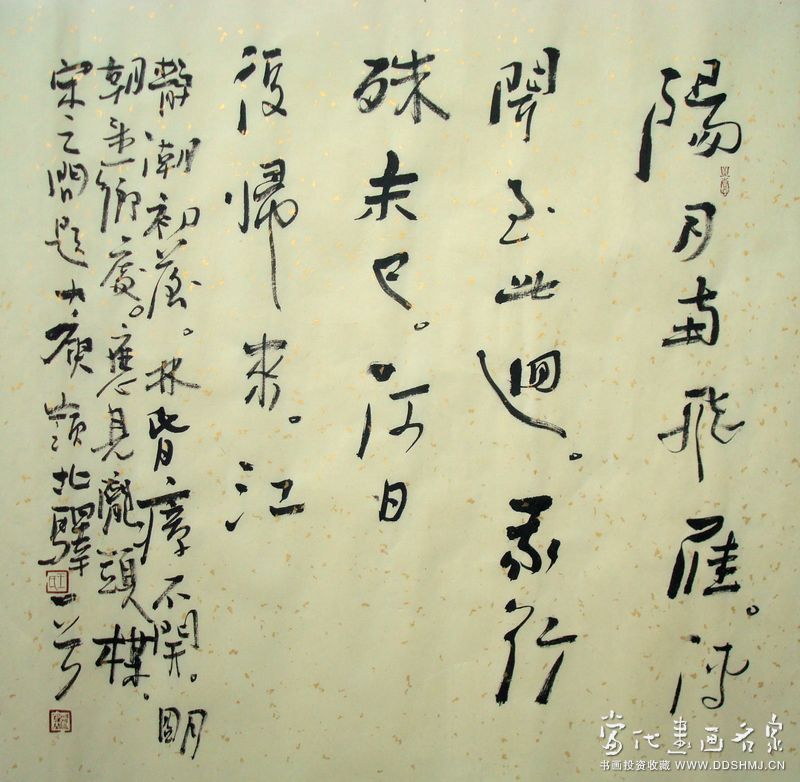 陽月南飛雁。傳
聞至此迴。我行
殊未已。何日
復歸來。江
靜潮初落。林昏瘴不開。明
朝望鄉處。應見隴頭梅。
宋之問題大庾嶺北驛
当代書画名家
书画投资收藏 WWW.DDSHMJ.CN